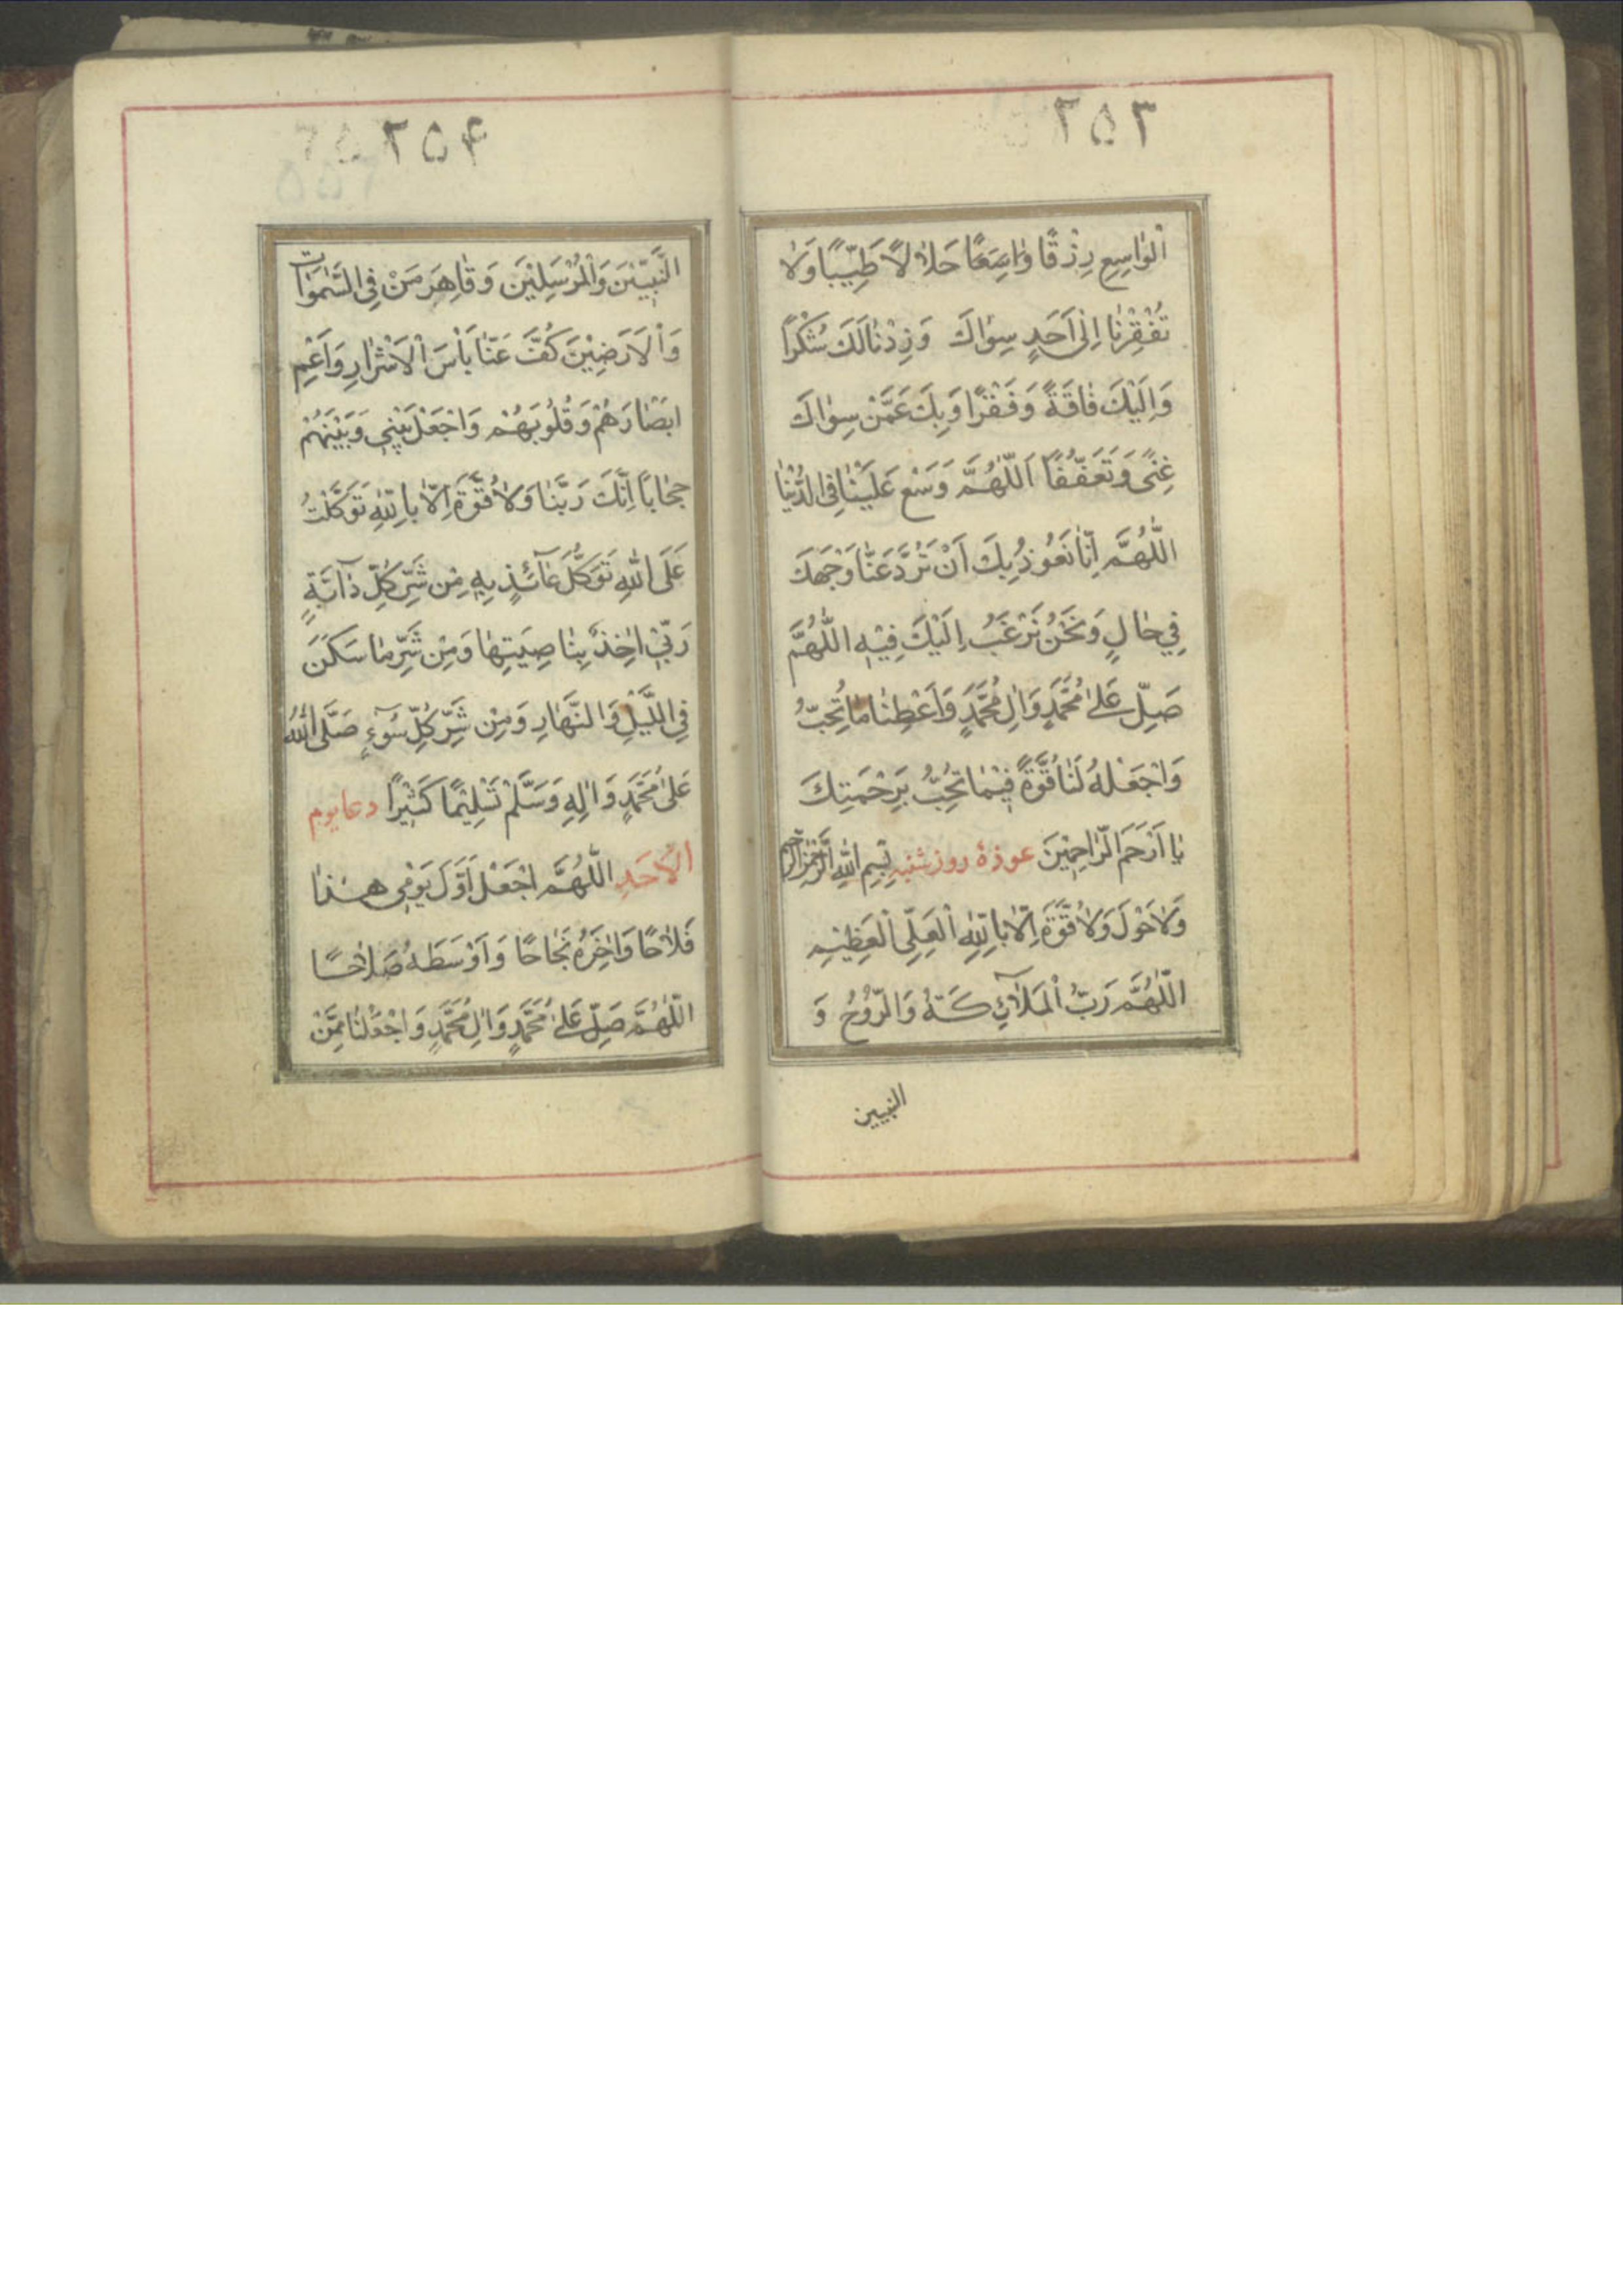 ۲۵۳
اَلْوٰاسِعِ رِزْقًا وٰاسِعًا حَلاٰلاً طَيِّبًا وَلاٰ
تُفْقِرْنٰا اِلٰى اَحَدٍ سِوٰاكَ وَزِدْنٰا لَكَ شُكْرًا
وَاِلَيْكَ فٰاقَةً وَفَقْرًا وَبِكَ عَمَّنْ سِوٰاكَ
غِنًى وَتَعَفُّفًا اَللّٰهُمَّ وَسِّعْ عَلَيْنٰا فِى الدُّنْيٰا
اللّٰهُمَّ اِنّٰا نَعُوذُ بِكَ اَنْ تَرُدَّ عَنّٰا وَجْهَكَ
فِي حٰالٍ وَنَحْنُ نَرْغَبُ اِلَيْكَ فِيْهِ اللّٰهُمَّ
صَلِّ عَلىٰ مُحَمَّدٍ وَاٰلِ مُحَمَّدٍ وَاَعْطِنٰا مٰا تُحِبُّ
وَاجْعَلْهُ لَنٰا قُوَّةً فِيْمٰا تُحِبُّ بِرَحْمَتِكَ
يٰا اَرْحَمَ الرّٰاحِمِيْنَ عوذهٔ روز شنبه بِسْمِ اللّٰهِ الرَّحْمٰنِ الرَّحِيم
وَلاٰ حَوْلَ وَلاٰ قُوَّةَ اِلّاٰ بِاللّٰهِ الْعَلِىِّ الْعَظِيْمِ
اللّٰهُمَّ رَبَّ الْمَلاٰۤئِكَةِ وَالرُّوْحُ وَ
النبيين
۲۵۴
النَّبِيّيْنَ وَالْمُرْسَلِيْنَ وَقٰاهِرَ مَنْ فِى السَّمٰوٰاتِ
وَالْاَرَضِيْنَ كُفَّ عَنّٰا بَاْسَ الْاَشْرٰارِ وَاَعْمِ
ابَصْٰارَهُمْ وَقُلُوبَهُمْ وَاجْعَلْ بَيْنِي وَبَيْنَهُمْ
حِجٰابًا اِنَّكَ رَبَّنٰا وَلاٰ قُوَّةَ اِلّاٰ بِاللّٰهِ تَوَكَّلْتُ
عَلَى اللّٰهِ تَوَكُّلَ عٰآئِذٍ بِهٖ مِنْ شَرِّ كُلِّ دٰآبَّةٍ
رَبِّيْ اٰخِذٌ بِنٰاصِيَتِهٰا وَمِنْ شَرِّ مٰا سَكَنَ
فِى اللَّيْلِ وَالنَّهٰارِ وَمِنْ شَرِّ كُلِّ سُوۤءٍ صَلَّى اللّٰهُ
عَلىٰ مُحَمَّدٍ وَاٰلِهِ وَسَلَّمْ تَسْلِيْمًا كَثِيْرًا دعا يوم
الْاَحَدِ اللّٰهُمَّ اجْعَلْ اَوَّلَ يَوْمِي هٰذٰا
فَلاٰحًا وَاٰخِرَهُ نَجٰاحًا وَاَوْسَطَهُ صَلاٰحًا
اللّٰهُمَّ صَلِّ عَلىٰ مُحَمَّدٍ وَاٰلِ مُحَمَّدٍ وَاجْعَلْنٰا مِمَّنْ